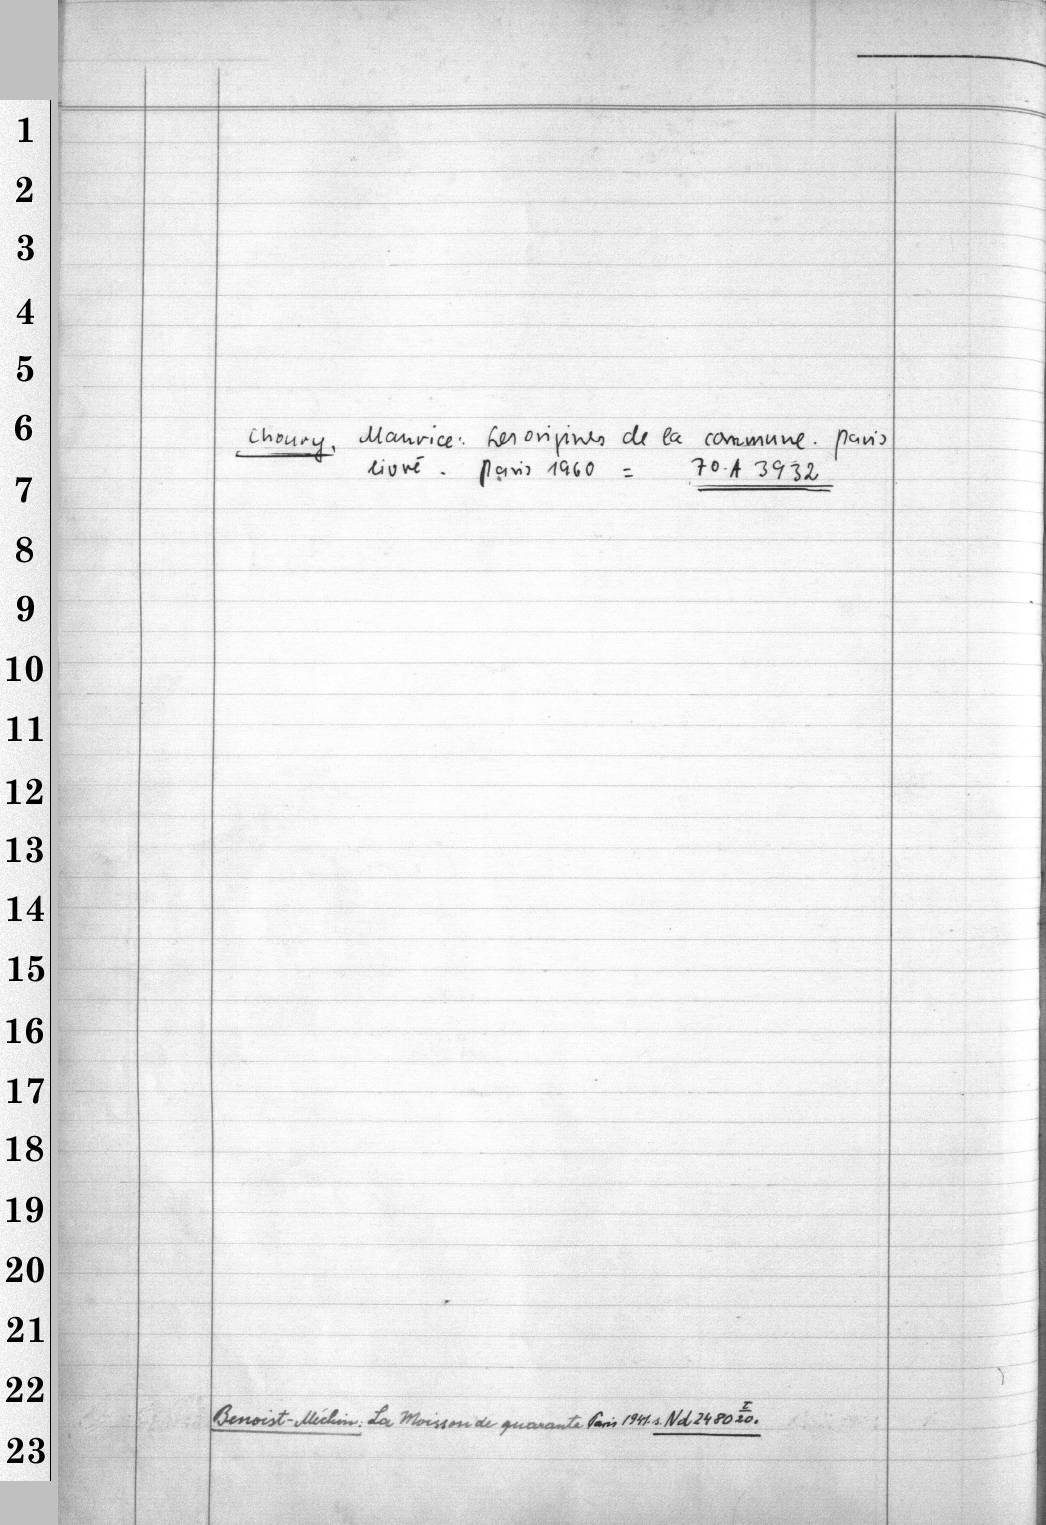 1
2
3
4
5
6
Choury, Maurice: Les origines de la commune. Paris
livré. Paris 1960 = 70.A 3932
7
8
9
10
11
12
13
14
15
16
17
18
19
20
21
22
Benoist-Méchin: La Moisson de quarante Paris 1941. s. Nd 2480 I/20.
23